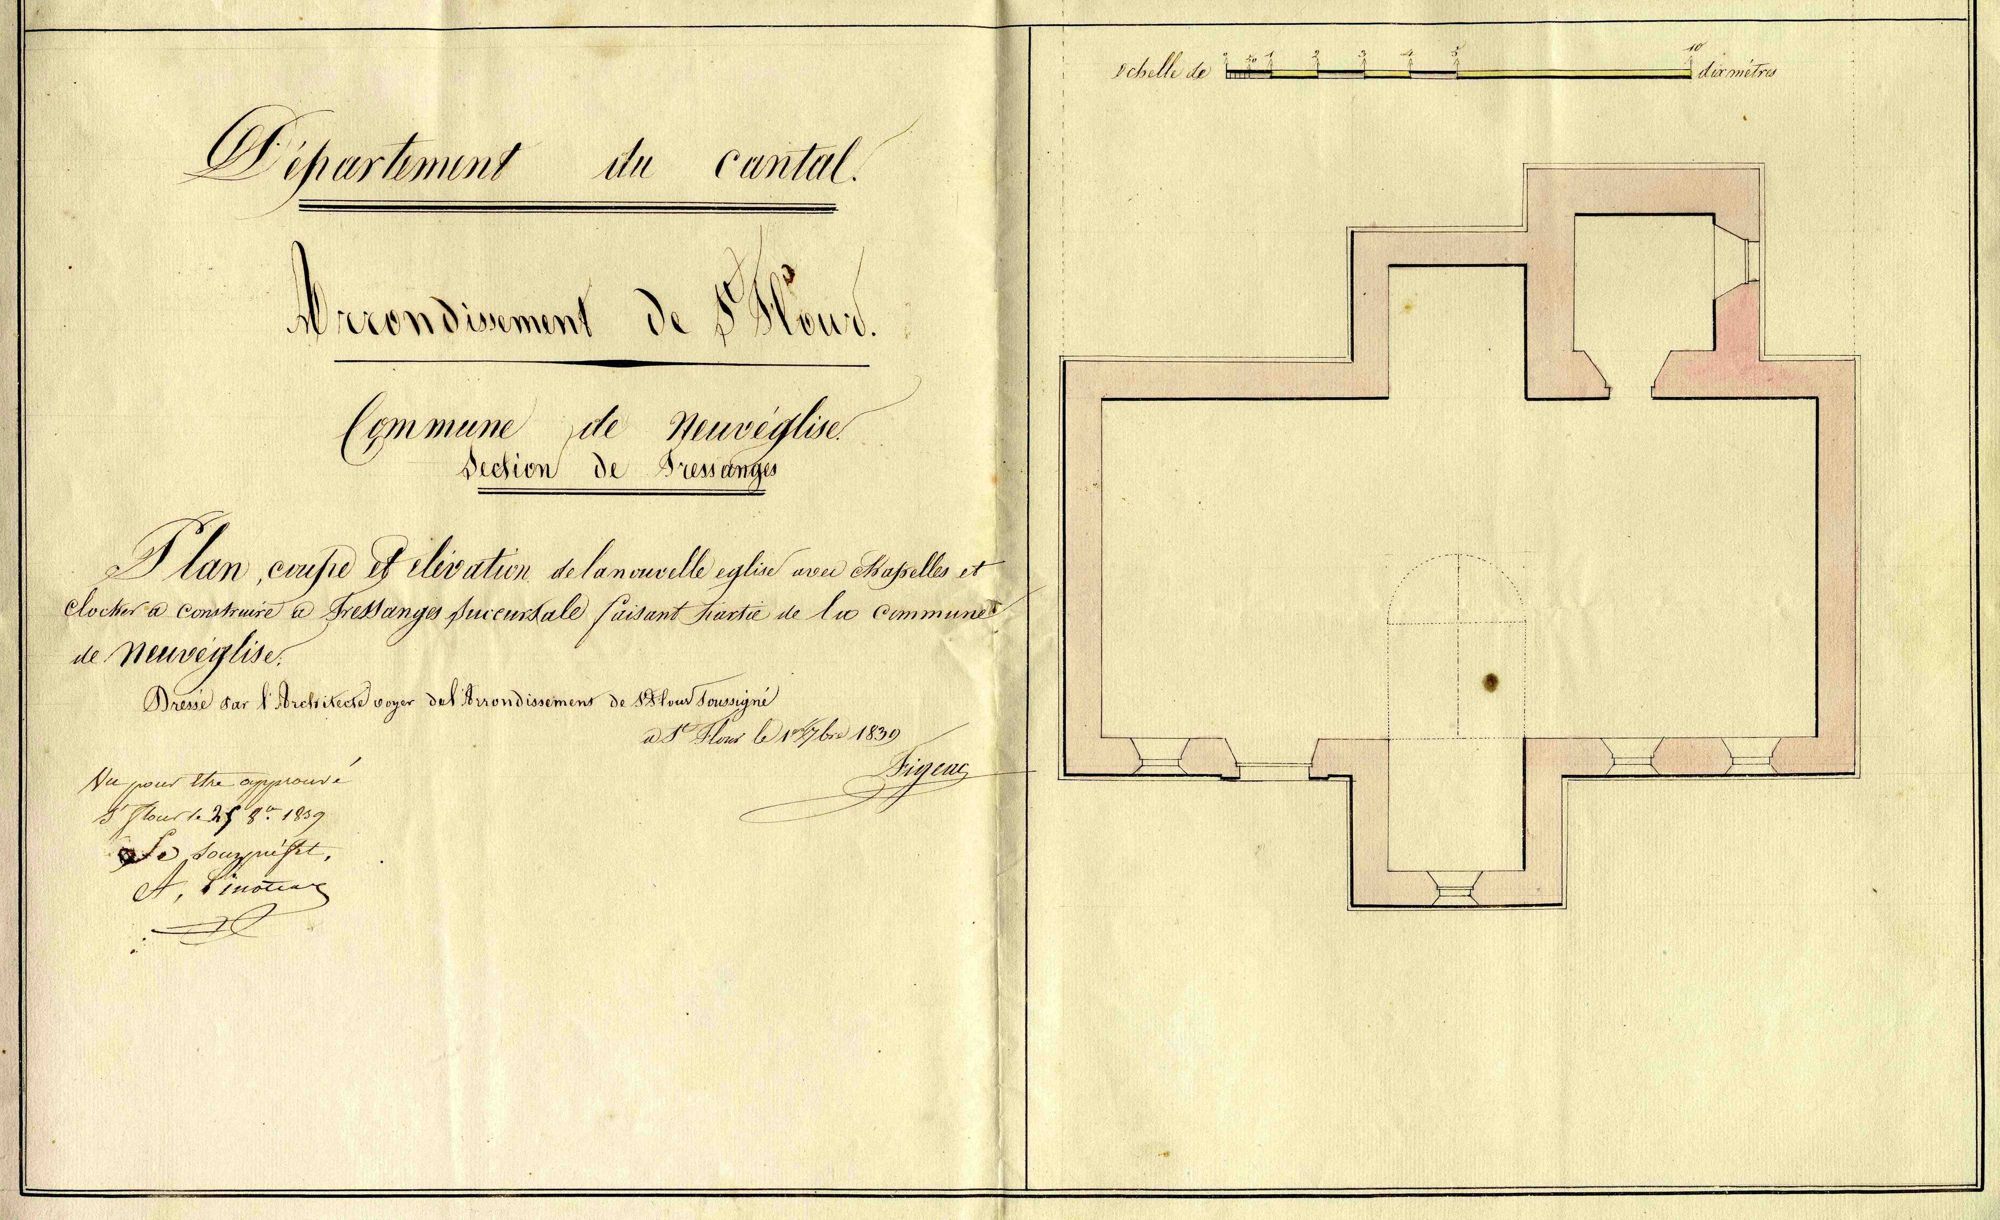 Département du cantal.
Arrondissement de St Flour.
Commune de Neuvéglise.
Section de Fressanges
Plan, coupe et élévation de la nouvelle eglise avec chapelles et
clocher a construire a Fressanges succursale faisant partie de la commune
de Neuvéglise.
Dressé par l'Architecte voyer de l'Arrondissement de St Flour soussigné
a St Flour le 1er 7bre 1839
Figeac
Vu pour être approuvé
St Flour le 25 8bre 1839
Le sous préfet,
A.
echelle de 0 50 1 2 3 4 5 10 dix métres